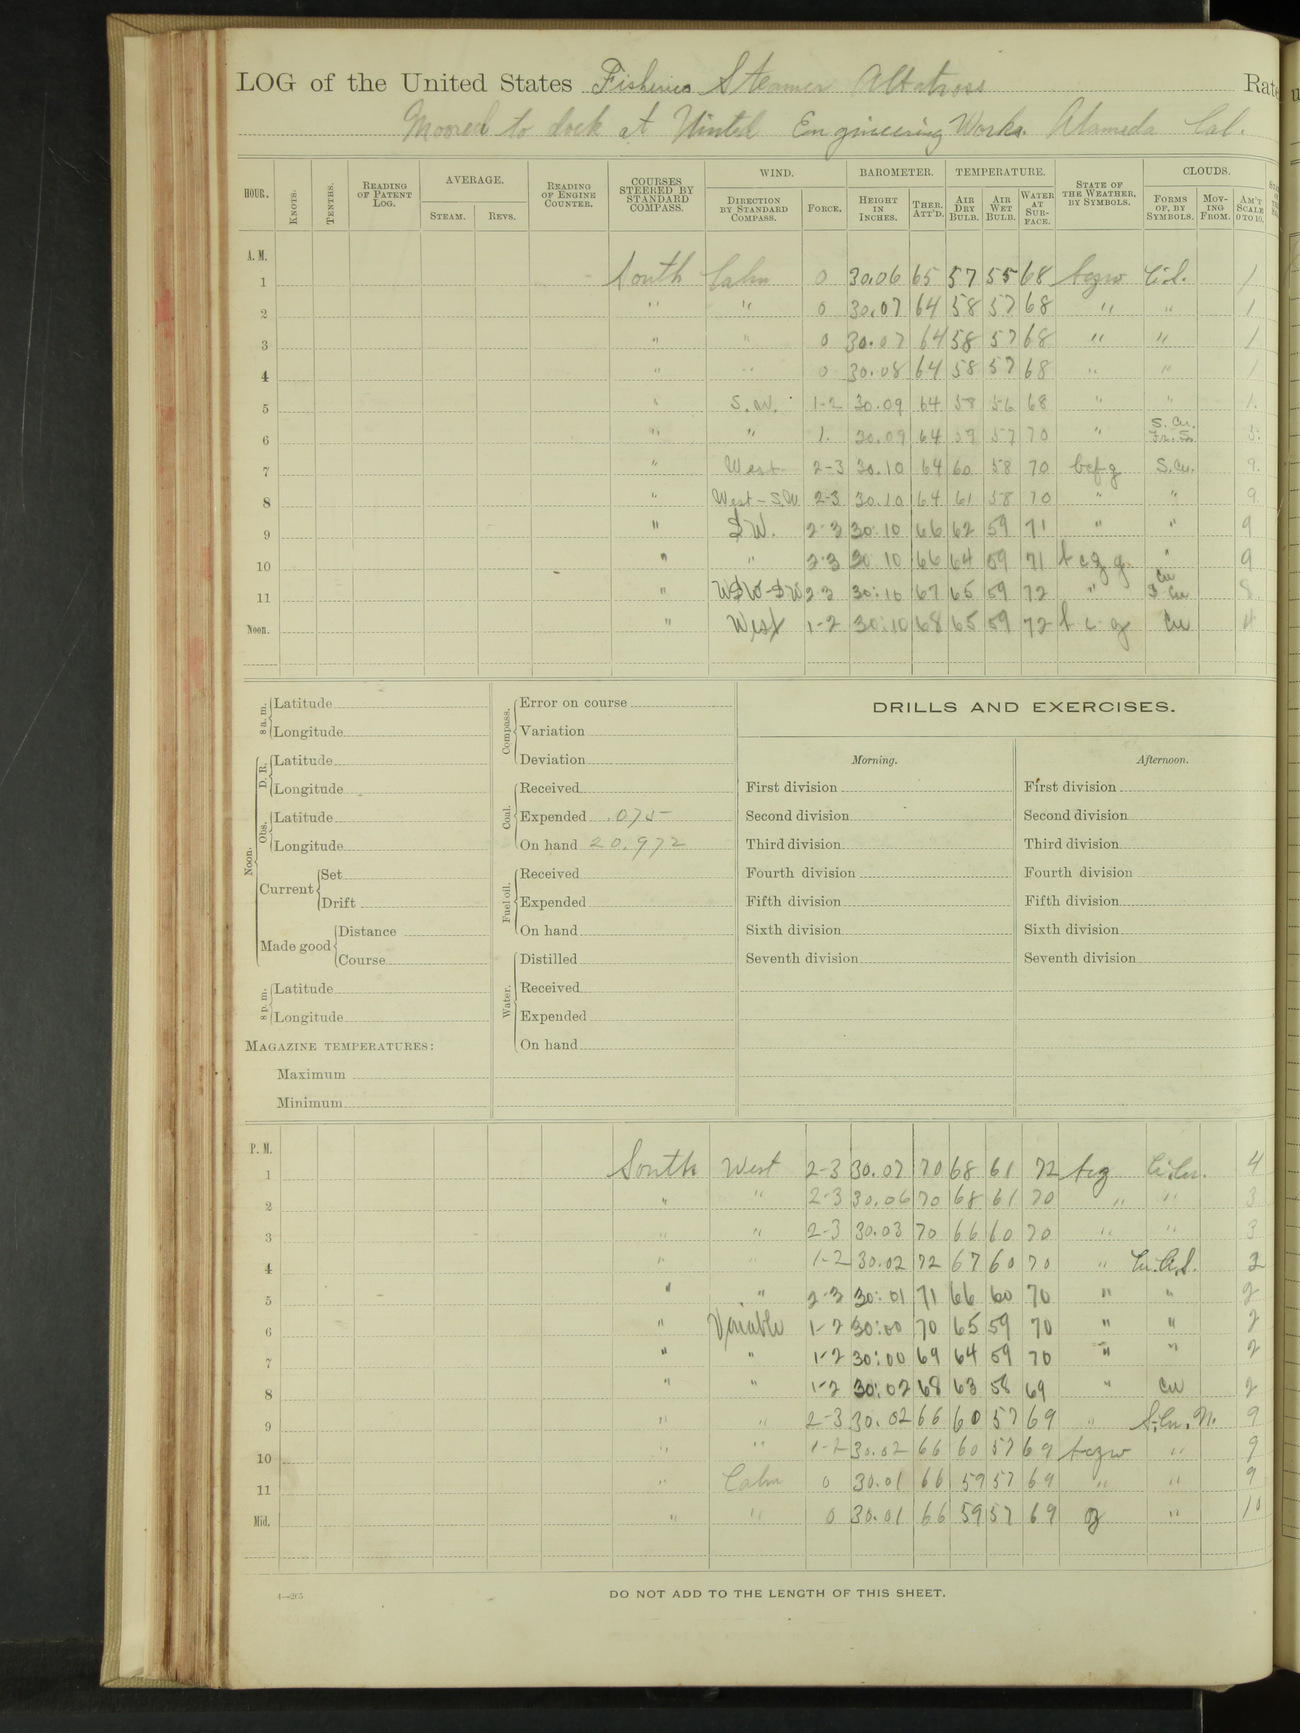 LOG of the United States Fisheries Steamer Albatross Rate
Moored to dock at United Engineering Works. Alameda Cal.
HOUR. KNOTS. TENTHS. READING OF PATENT LOG. AVERAGE. STEAM. REVS. READING OF ENGINE COUNTER. COURSES STEERED BY STANDARD COMPASS. WIND. DIRECTION BY STANDARD COMPASS. FORCE. BAROMETER. HEIGHT IN INCHES. THER. ATT'D. TEMPERATURE. AIR DRY BULB. AIR WET BULB. WATER AT SURFACE. STATE OF THE WEATHER, BY SYMBOLS. CLOUDS. FORMS OF, BY SYMBOLS. MOVING FROM. AM'T SCALE 0 TO 10.
A. M.
1 South Calm 0 30.06 65 57 55 68 bczw Ci.S. 1
2 " " 0 30.07 64 58 57 68 " " 1
3 " " 0 30.07 64 58 57 68 " " 1
4 " " 0 30.08 64 58 57 68 " " 1
5 " S.W. 1-2 30.09 64 58 56 68 " " 1.
6 " " 1. 30.09 64 59 57 70 " S. Cu. 5.
7 " West 2-3 30.10 64 60 58 70 bcfg S.Cu. 9.
8 " West-S.W. 2-3 30.10 64 61 58 70 " " 9
9 " SW. 2-3 30:10 66 62 59 71 " " 9
10 " " 2-3 30 10 66 64 59 71 " 9
11 " WSW-SW 2-3 30:10 67 65 59 72 " Cu S Cu 8
Noon. " West 1-2 30:10 68 65 59 72 Cu 4
8 a. m. Latitude
Longitude
Noon. D. R. Latitude
Longitude
Obs. Latitude
Longitude
Current Set
Drift
Made good Distance
Course
8 p. m. Latitude
Longitude
MAGAZINE TEMPERATURES:
Maximum
Minimum
Compass. Error on course
Variation
Deviation
Coal. Received
Expended .075
On hand 20.972
Fuel oil. Received
Expended
On hand
Water. Distilled
Received
Expended
On hand
DRILLS AND EXERCISES.
Morning.
First division
Second division
Third division
Fourth division
Fifth division
Sixth division
Seventh division
Afternoon.
First division
Second division
Third division
Fourth division
Fifth division
Sixth division
Seventh division
P. M.
1 South West 2-3 30.07 70 68 61 72 bcg Ci.Cu. 4
2 " " 2-3 30.06 70 68 61 70 " " 3
3 " " 2-3 30.03 70 66 60 70 " " 3
4 " " 1-2 30.02 72 67 60 70 " 2
5 " " 2-3 30:01 71 66 60 70 " " 2
6 " Variable 1-2 30:00 70 65 59 70 " " 2
7 " " 1-2 30:00 69 64 59 70 " " 2
8 " " 1-2 30:02 68 63 58 69 " Cu 2
9 " " 2-3 30.02 66 60 57 69 " S.Cu. N. 9
10 " " 1-2 30.02 66 60 57 69 bczw " 9
11 " Calm 0 30.01 66 59 57 69 " " 9
Mid. " " 0 30.01 66 59 57 69 " 10
4—265
DO NOT ADD TO THE LENGTH OF THIS SHEET.